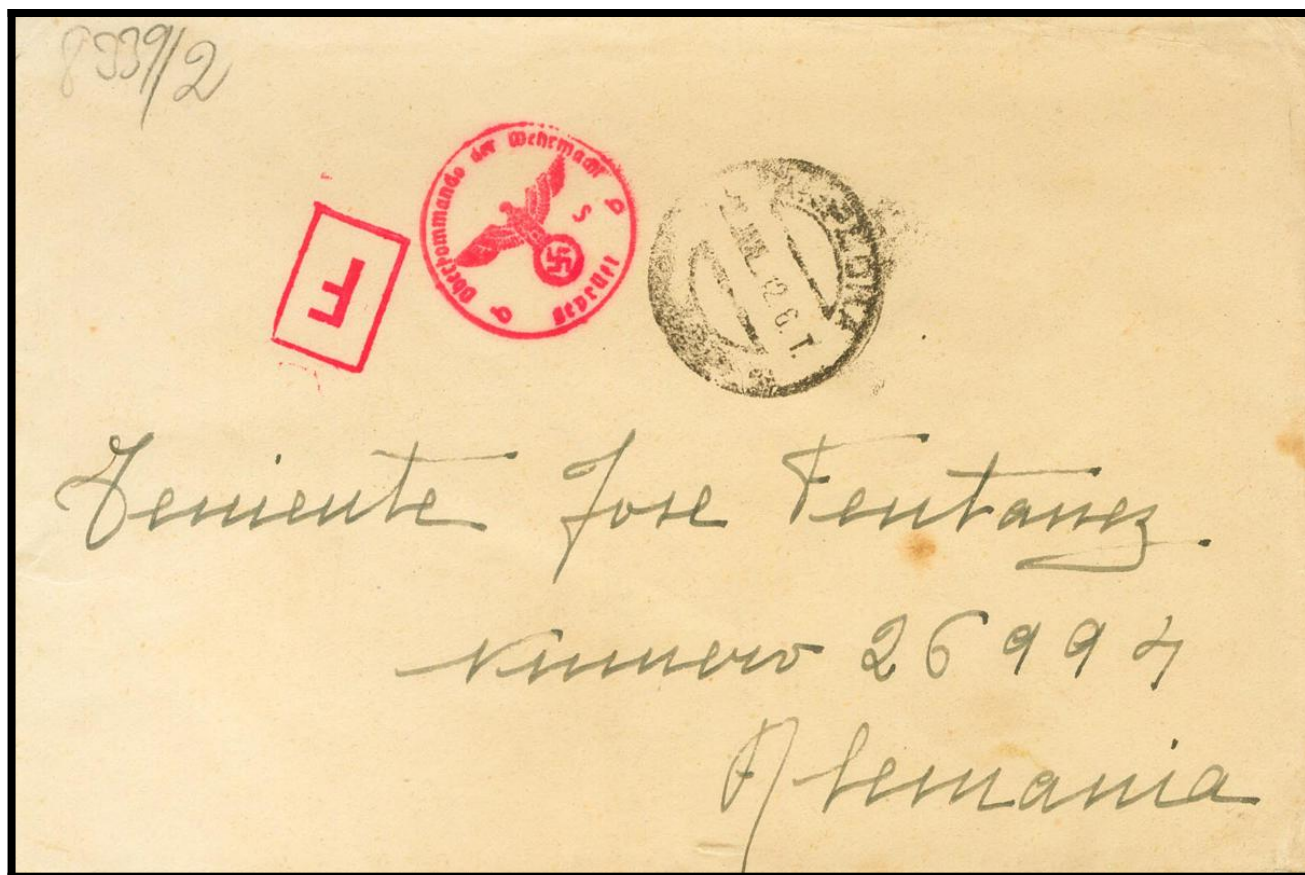 8339/2
Oberkommando der Wehrmacht
Geprüft
F
12. 6. T.
Teniente Jose Fentanez
Numero 26994
Alemania